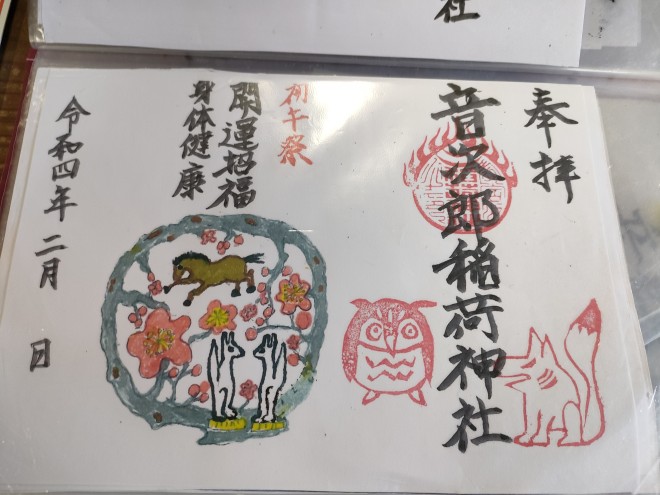 社
奉拝
音次郎稲荷神社
初午祭
開運招福
身体健康
令和四年二月 日